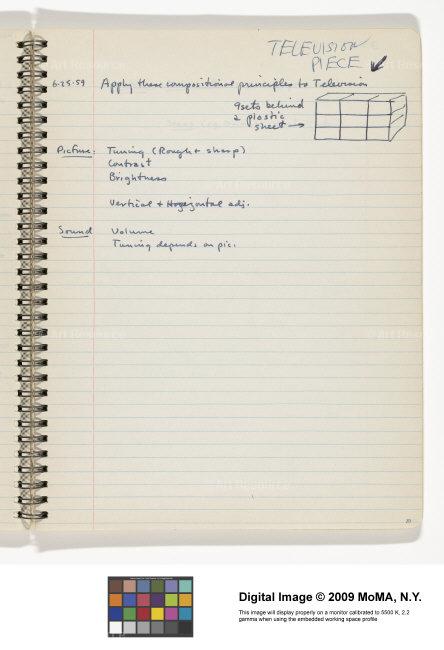 TELEVISION
PIECE
6·25·59 Apply these compositional principles to Television
9 sets behind
a plastic
sheet →
Picture: Tuning (Rough + sharp)
Contrast
Brightness
Vertical + Horizontal adj.
Sound Volume
Tuning depends on pic.
Art Resource
20
Digital Image © 2009 MoMA, N.Y.
This image will display properly on a monitor calibrated to 5500 K, 2.2
gamma when using the embedded working space profile